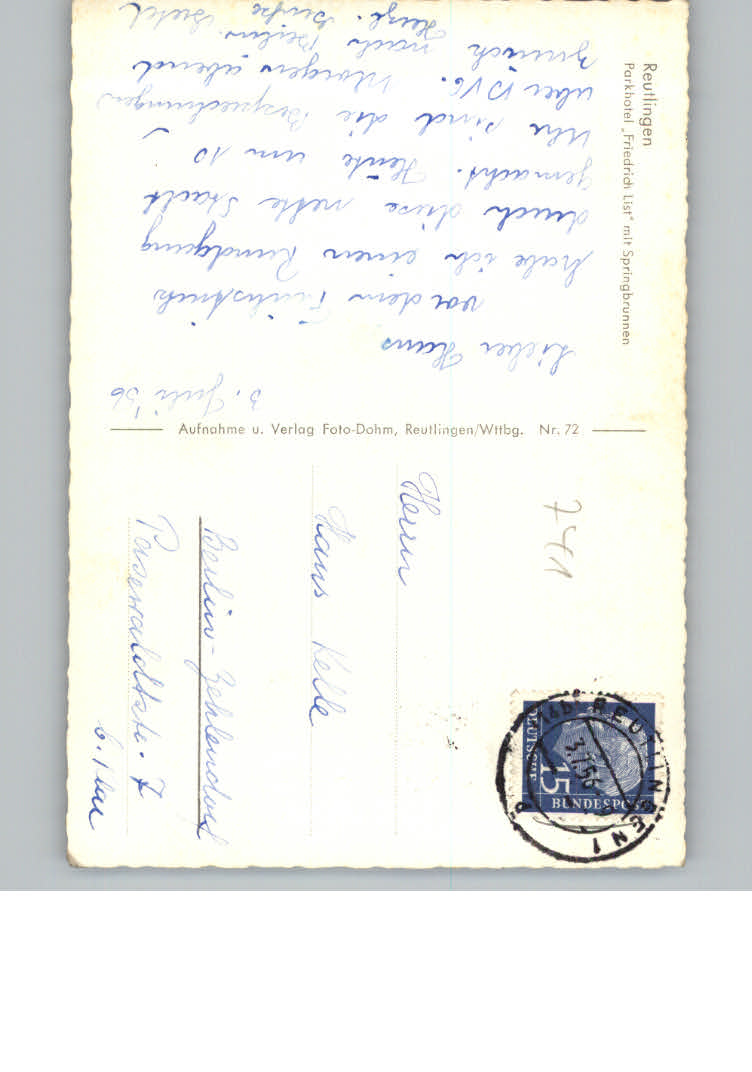 Reutlingen
Parkhotel „Friedrich List" mit Springbrunnen
3. Juli '56
Lieber Hans
vor dem Frühstück
habe ich einen Rundgang
durch diese nette Stadt
gemacht. Heute um 10
Uhr sind die Besprechungen
über
Morgen abend
zurück nach Berlin.
Herzl. Grüße
Aufnahme u. Verlag Foto-Dohm, Reutlingen/Wttbg. Nr. 72
Herrn
Hans Kelle
Berlin-Zehlendorf
Pasewaldtstr. 7
b.
741
(14b) REUTLINGEN 1
3.7.56
DEUTSCHE
BUNDESPOST
15